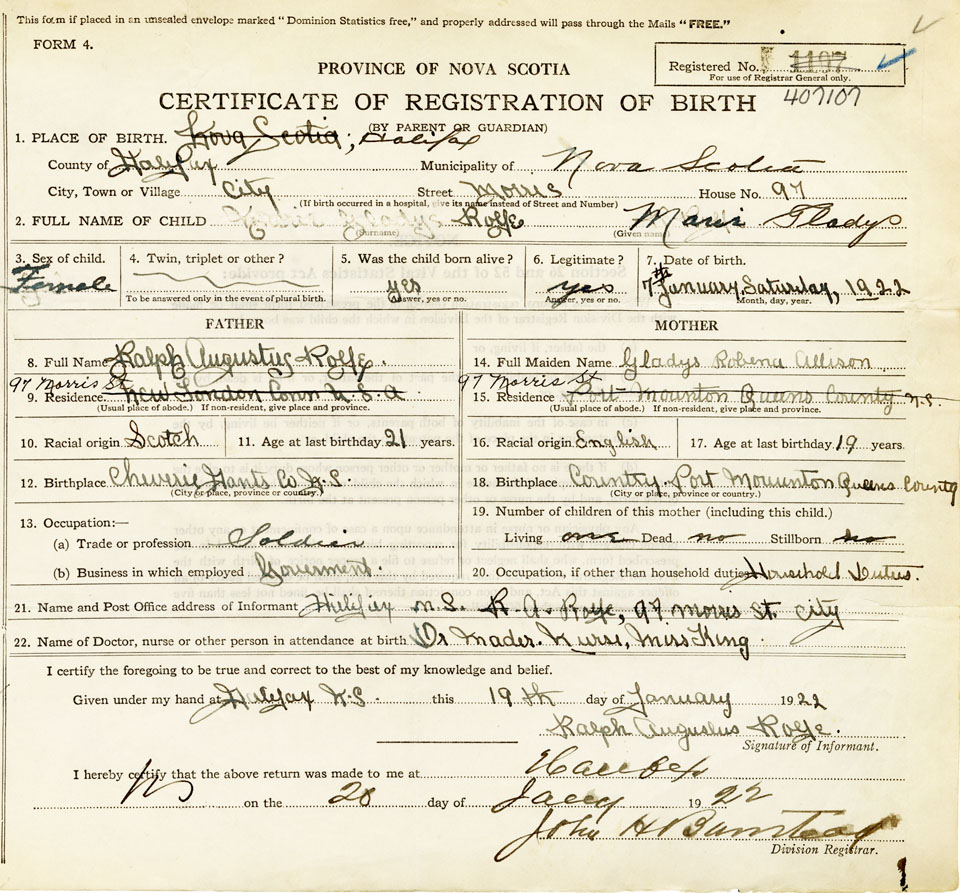 This form if placed in an unsealed envelope marked "Dominion Statistics free," and properly addressed will pass through the Mails "FREE."
FORM 4.
Registered No. 1107
For use of Registrar General only.
407107
PROVINCE OF NOVA SCOTIA
CERTIFICATE OF REGISTRATION OF BIRTH
(BY PARENT OR GUARDIAN)
1. PLACE OF BIRTH. Nova Scotia, Halifax
County of Halifax Municipality of Nova Scotia
City, Town or Village City Street Morris House No. 97
(If birth occurred in a hospital, give its name instead of Street and Number)
2. FULL NAME OF CHILD Gladys Rolfe Marie Gladys
(Surname) (Given name)
3. Sex of child. 4. Twin, triplet or other? 5. Was the child born alive? 6. Legitimate? 7. Date of birth.
Female yes yes 7th January, Saturday, 1922
To be answered only in the event of plural birth. Answer, yes or no. Answer, yes or no. Month, day, year.
FATHER MOTHER
8. Full Name Ralph Augustus Rolfe 14. Full Maiden Name Gladys Robena Allison
97 Morris St 97 Morris St
9. Residence New London Conn U.S.A 15. Residence Port Mounton Queens County N.S.
(Usual place of abode.) If non-resident, give place and province. (Usual place of abode.) If non-resident, give place and province.
10. Racial origin Scotch 11. Age at last birthday 21 years. 16. Racial origin English 17. Age at last birthday 19 years.
12. Birthplace Cheverie Hants Co N.S. 18. Birthplace Country Port Mounton Queens County
(City or place, province or country.) (City or place, province or country.)
13. Occupation:— 19. Number of children of this mother (including this child.)
(a) Trade or profession Soldier Living one Dead no Stillborn no
(b) Business in which employed Goverment. 20. Occupation, if other than household duties Household Duties.
21. Name and Post Office address of Informant Halifax N.S. R. A. Rolfe, 97 Morris St. City
22. Name of Doctor, nurse or other person in attendance at birth Dr Mader. Nurse, Miss King
I certify the foregoing to be true and correct to the best of my knowledge and belief.
Given under my hand at Halifax N.S. this 19th day of January 1922
Ralph Augustus Rolfe.
Signature of Informant.
I hereby certify that the above return was made to me at Halifax
NS on the 20 day of Jany 1922
John H Barnstead
Division Registrar.
1